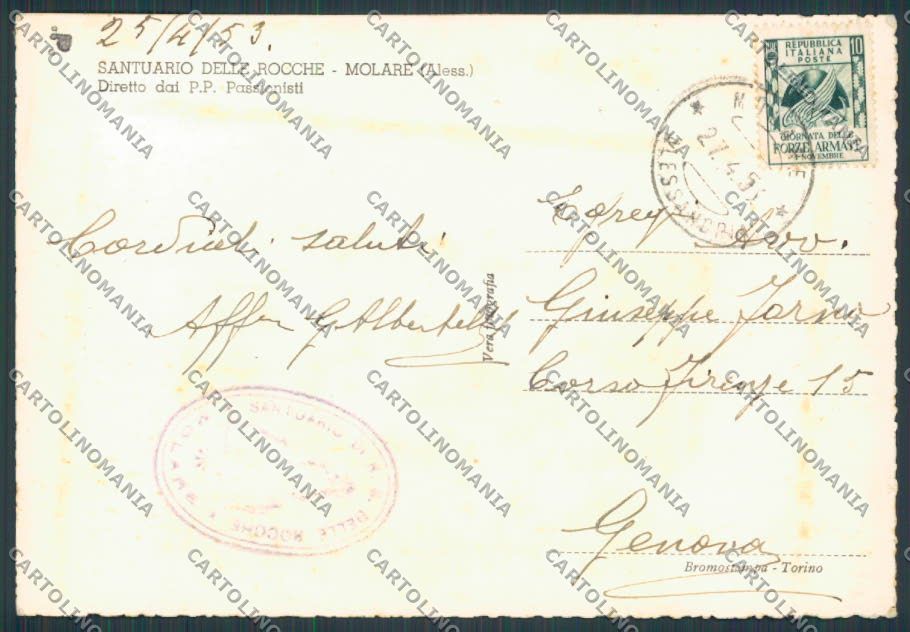 25/4/53.
SANTUARIO DELLE ROCCHE - MOLARE (Aless.)
Diretto dai P.P. Passionisti
REPUBBLICA
ITALIANA
POSTE
10
GIORNATA DELLE
FORZE ARMATE
4 NOVEMBRE
27.4.53
Cordiali saluti
Aff
Vera fotografia
Avv.
Giuseppe
Corso Firenze 15
Genova
Bromostampa - Torino
SANTUARIO DI N. S. DELLE ROCCHE
MOLARE
CARTOLINOMANIA